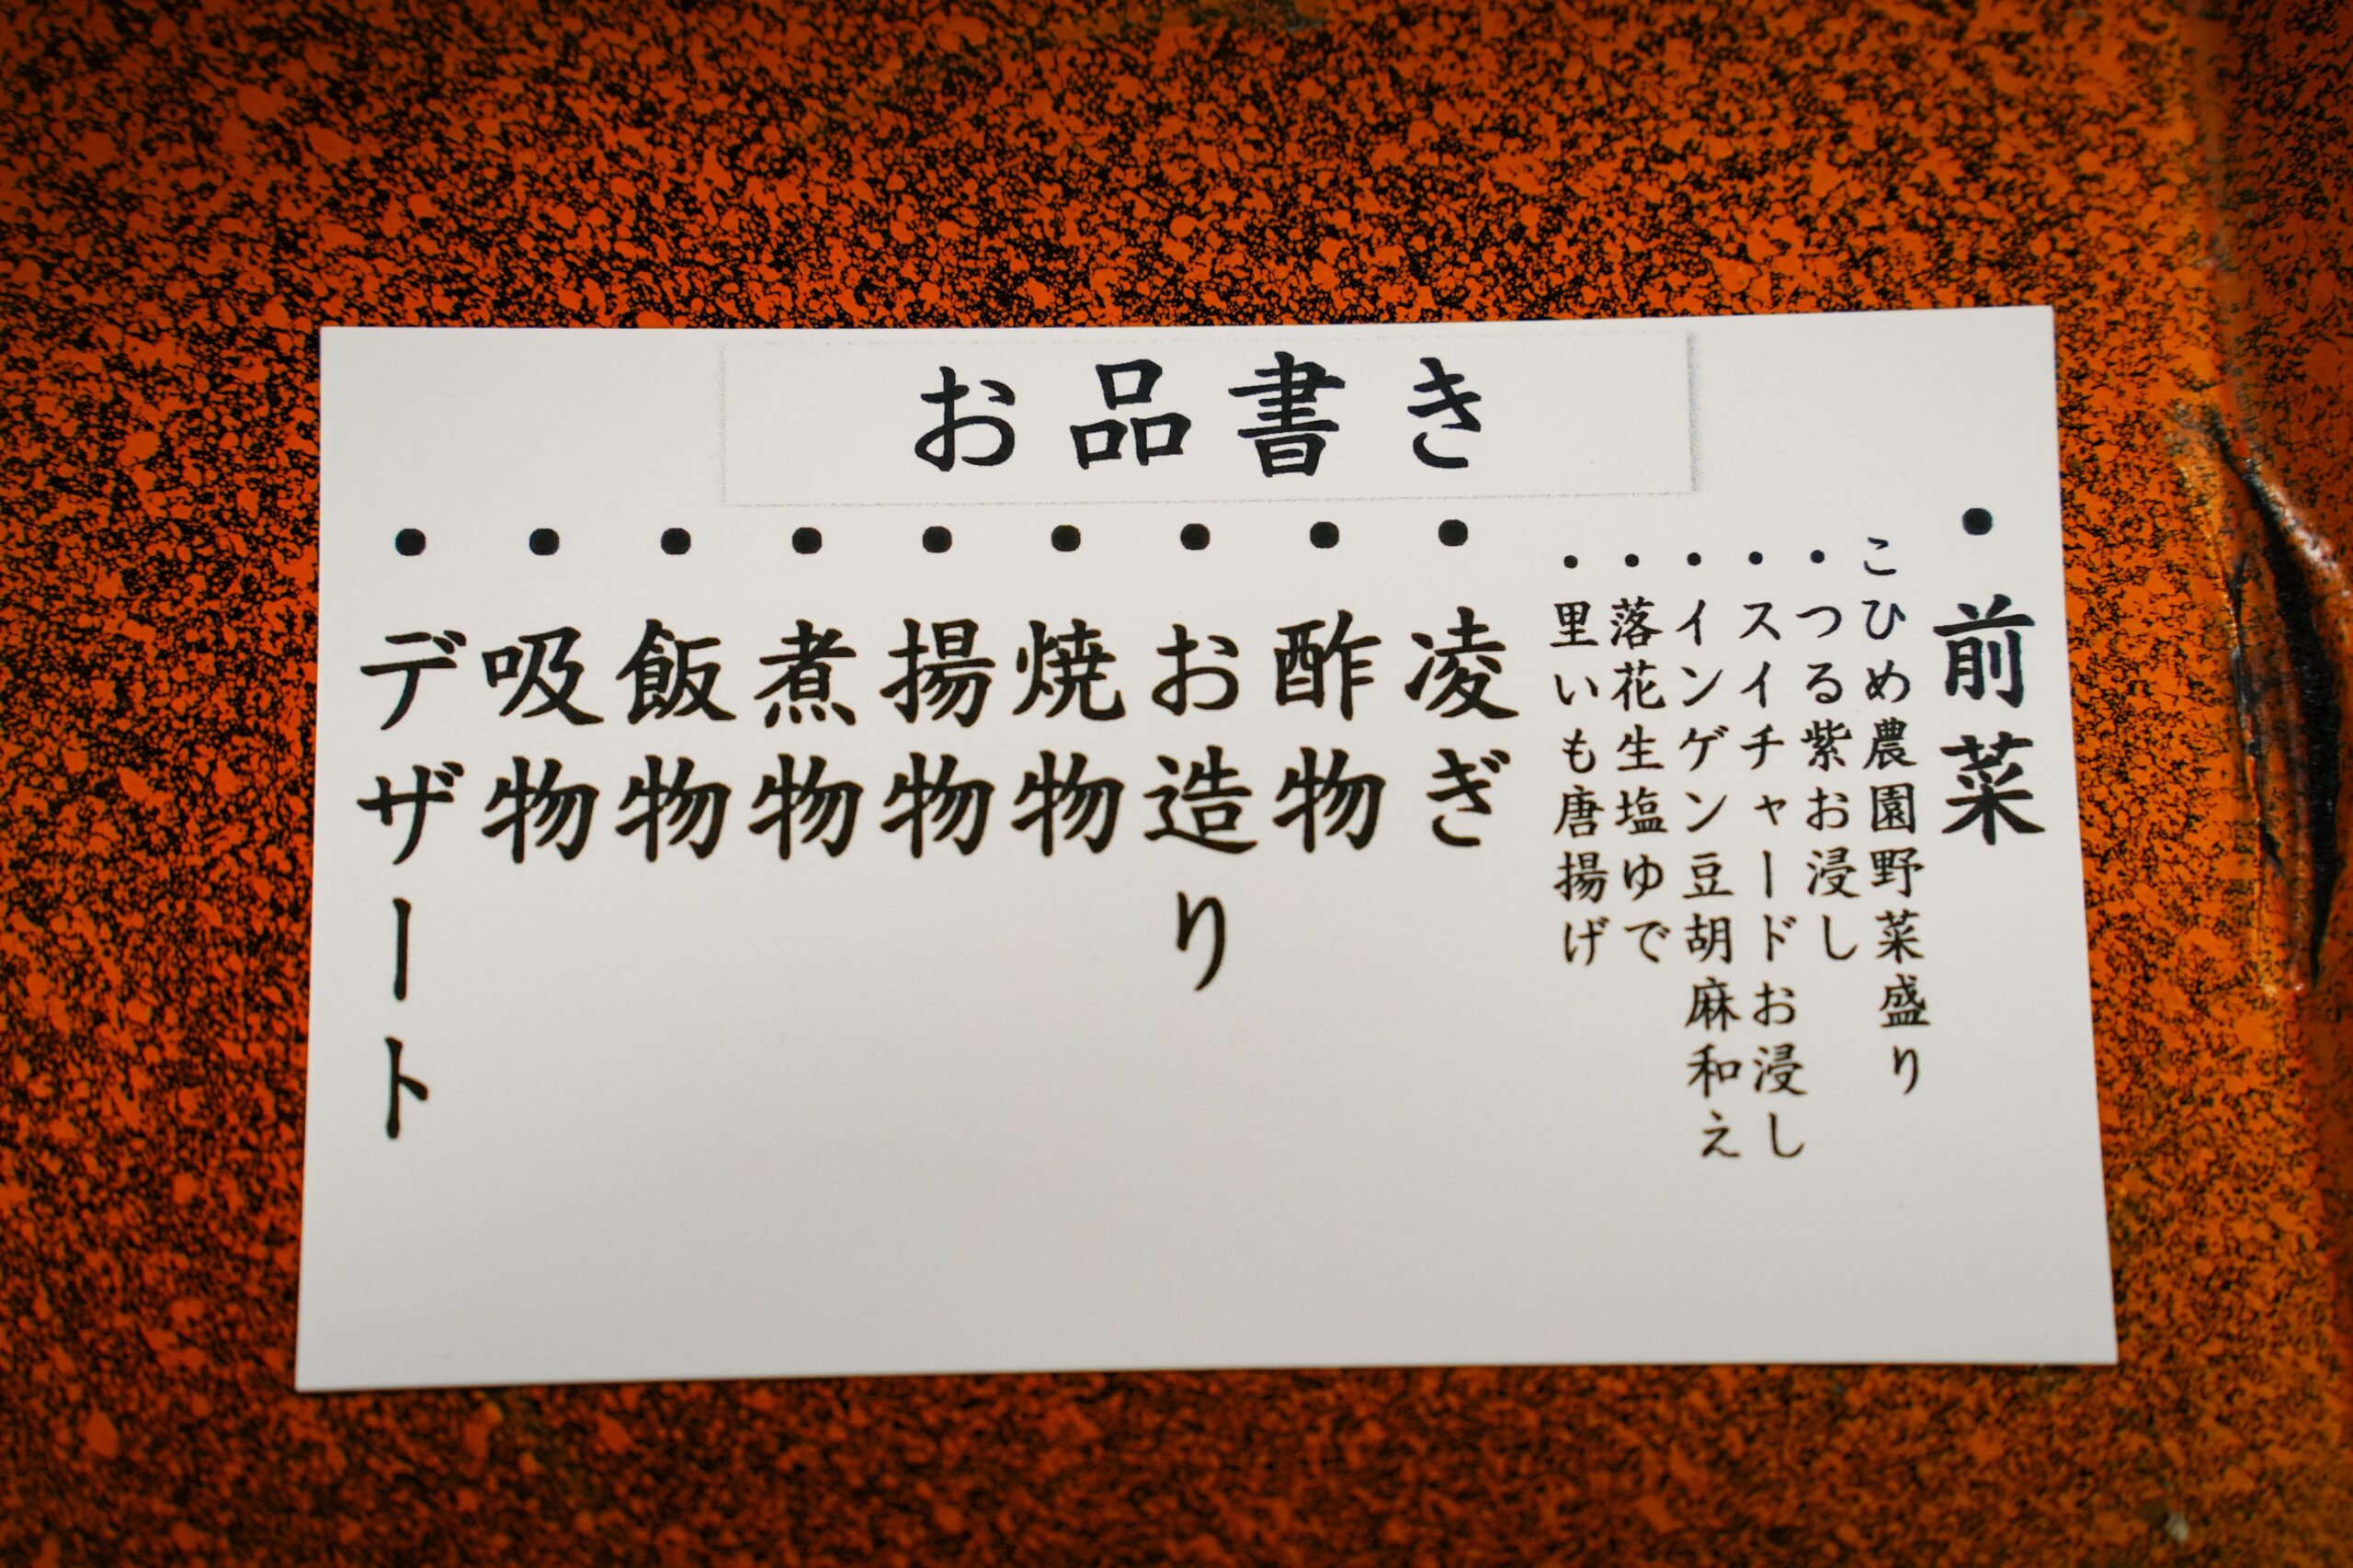 お品書き
・前菜
こひめ農園野菜盛り
・つる紫お浸し
・スイチャードお浸し
・インゲン豆胡麻和え
・落花生塩ゆで
・里いも唐揚げ
・凌ぎ
・酢物
・お造り
・焼物
・揚物
・煮物
・飯物
・吸物
・デザート